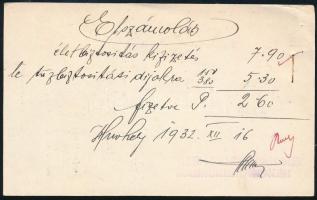 Elszámolás
életbiztosítás kifizetés 7.90
le tűzbiztosítási díjakra 150 380 5.30
fizetve P. 2.60
1932. XII 16